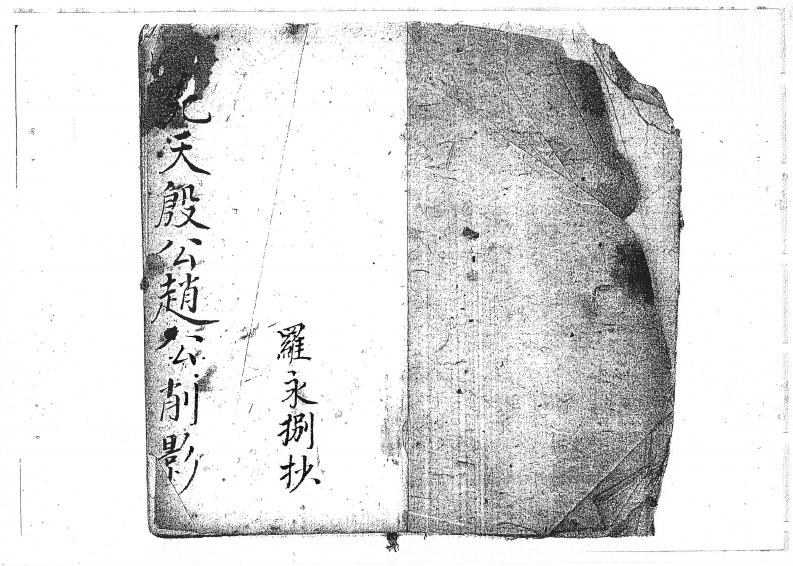 元天殷公趙公削影
羅永捌抄